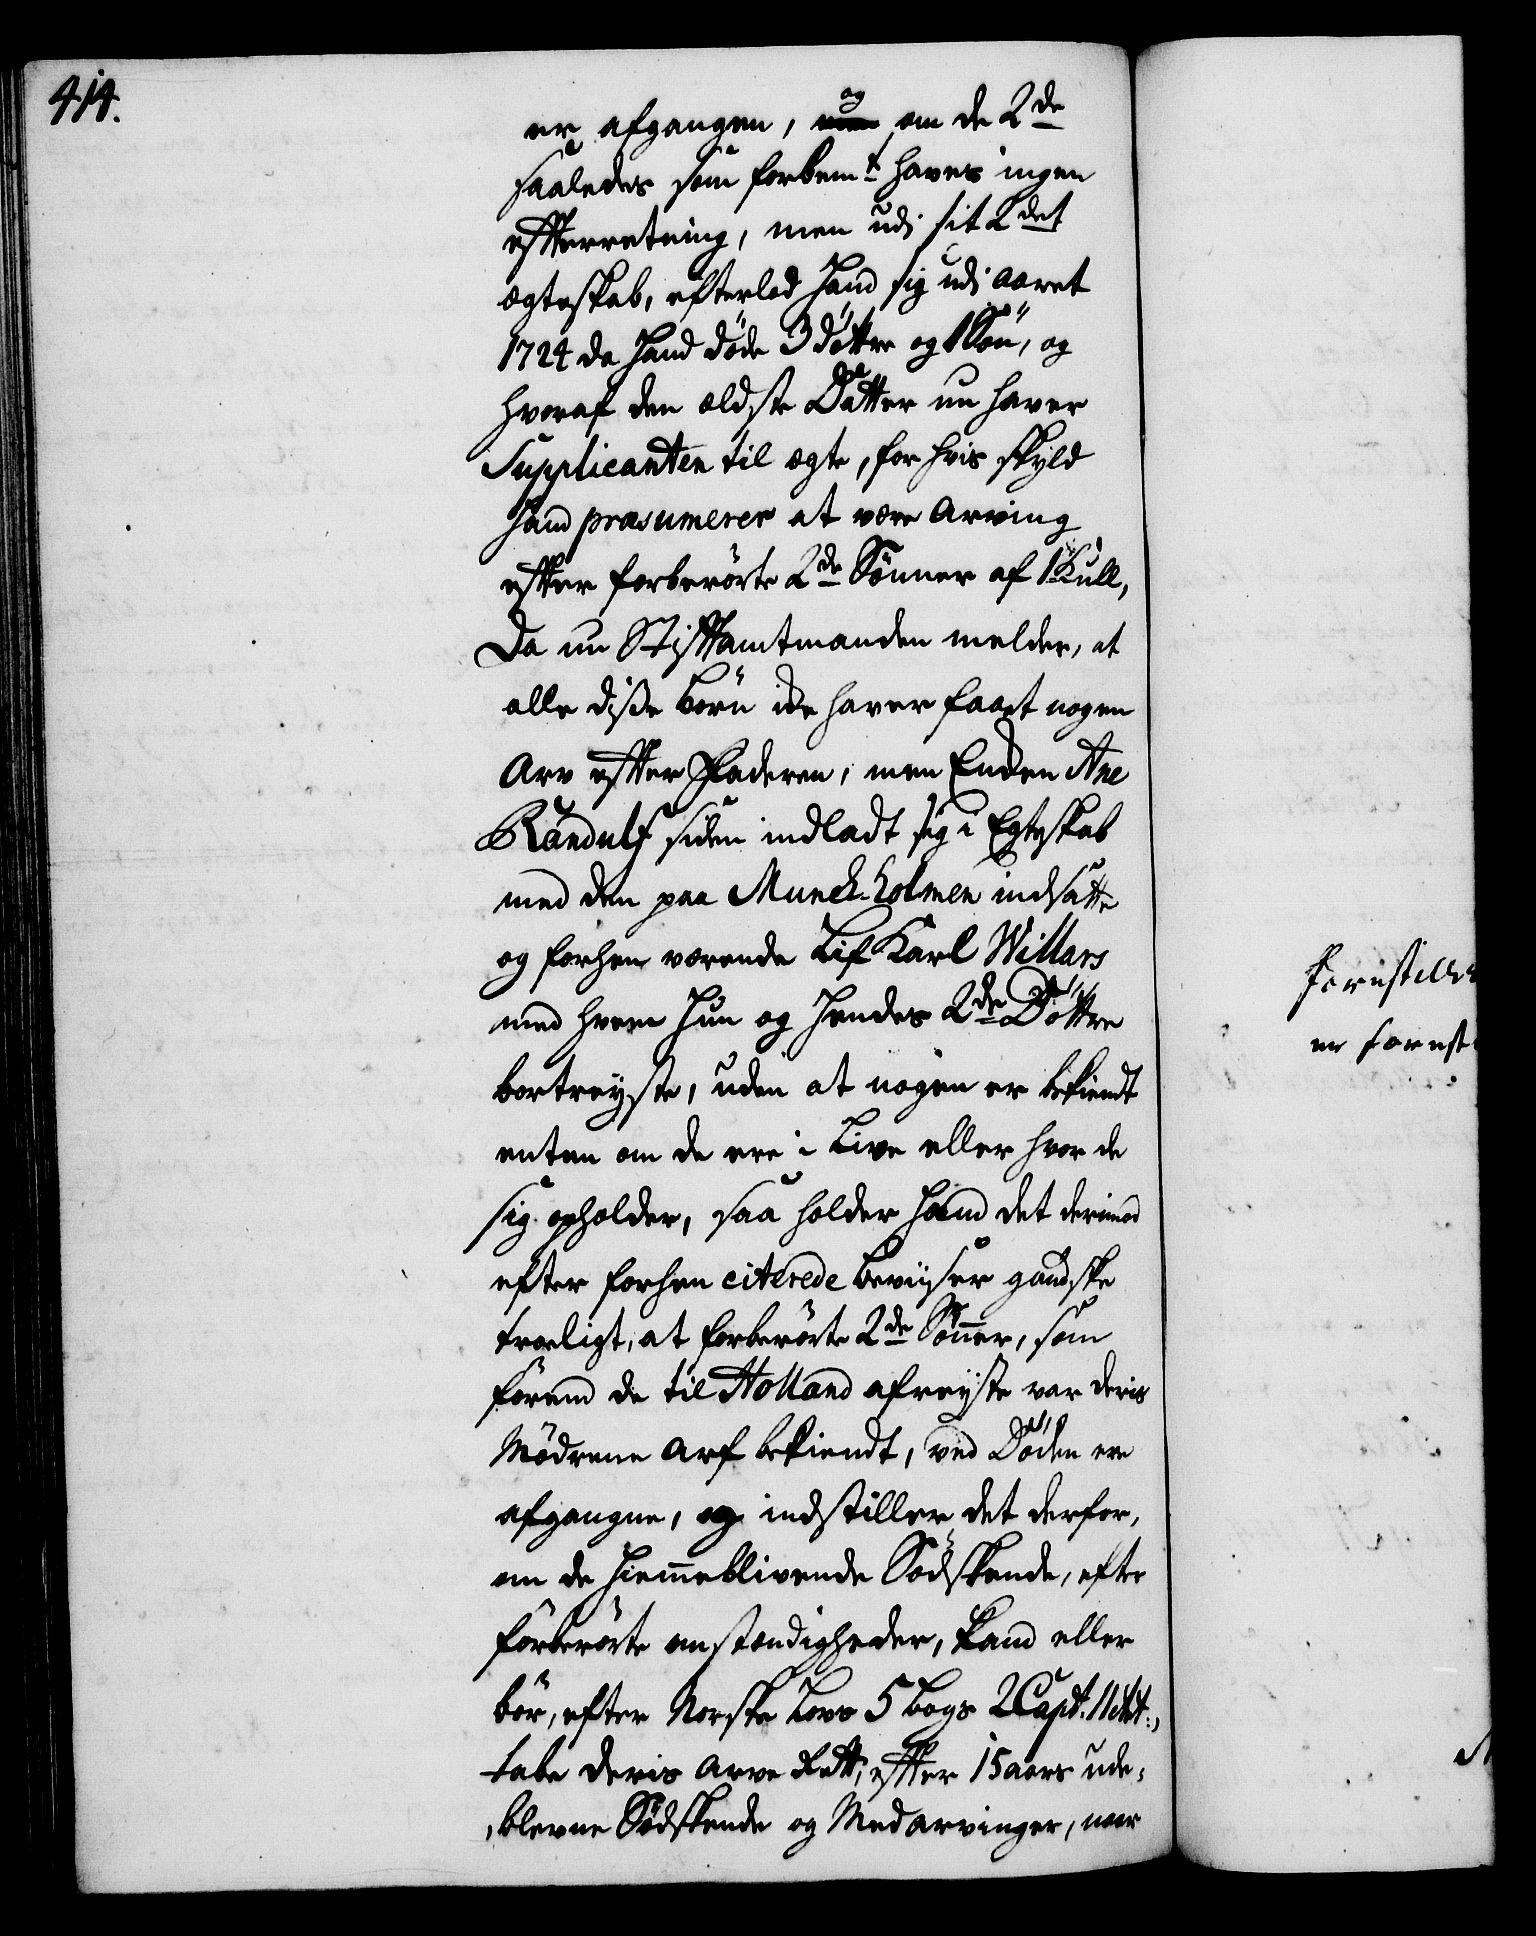 414.
er afgangen, og om de 2de
saaledes som forbemt haves ingen
effterretning, men udi sit 2det
ægteskab, efterlod hand sig udi aaret
1724 da hand döde 3 döttre og 1 Sön, og
hvoraf den ældste Datter nu haver
Supplicanten til ægte, for hvis skyld
hand præsumerer at være Arving
effter forberörte 2de Sönner af 1 Kull,
Da nu Stifftamtmanden melder, at
alle disse Börn icke haver faaet nogen
Arv effter Faderen, men Enden Ane
Randulf siden indladt sig i Egteskab
med den paa Munck-holmen indsatte
og forhen værende Lif Karl Willars
med hvem hun og hendes 2de Döttre
bortreyste, uden at nogen er bekiendt
enten om de ere i Live eller hvor de
sig opholder, saa holder hand det derimod
efter forhen citerede Beviiser gandske
troeligt, at forberörte 2de Söñer, som
förend de til Holland afreyste var deris
Mödrene Arf bekiendt, ved Döden ere
afgangne, og indstiller det derfor,
om de hiem̃eblivende Södskende, efter
forberörte omstændigheder, kand eller
bör, efter Norske Lovs 5 Bogs 2 Capt. 11 Art:,
tabe deris Arve Rett, effter 15 aars ude-
blevne Södskende og Medarvinger, naar